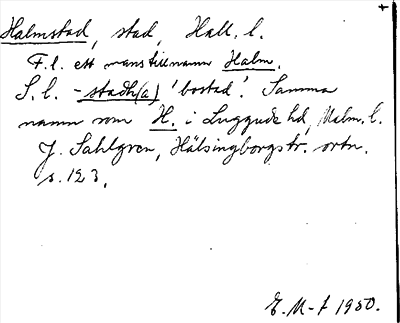 +
Halmstad, stad, Hall. l.
F.l. ett manstillnamn Halm.
S.l. - stadh(a) 'bostad'. Samma
namn som H. i Luggude hd, Malm. l.
J. Sahlgren, Hälsingborgstr. ortn.
s. 123.
E. M-t 1950.